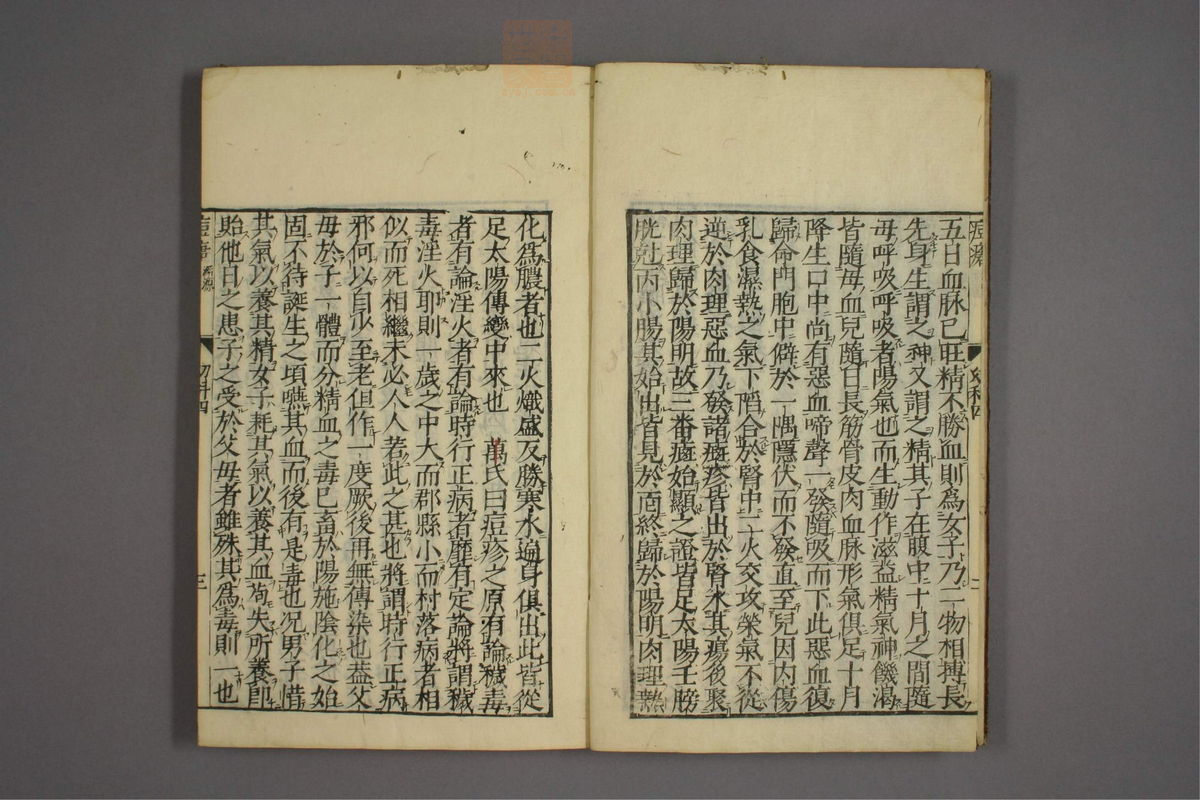 五日血脉已旺精不勝血則爲女子乃二物相搏長
先身生謂之神又謂之精其子在腹中十月之間隨
母呼吸呼吸者陽氣也而生動作滋益精氣神饑渴
皆隨母血兒隨日長筋骨皮肉血脉形氣俱足十月
降生口中尚有惡血啼聲一發隨吸而下此惡血復
歸命門胞中僻於一隅隱伏而不發直至兒因内傷
乳食濕熱之氣下陷合於腎中二火交攻榮氣不從
逆於肉理惡血乃發諸癍疹皆出於腎水其瘍後聚
肉理歸於陽明故三番癍始顯之證皆足太陽壬膀
胱尅丙小腸其始出皆見於面終歸於陽明肉理熱
化爲膿者也二火熾盛反勝寒水遍身俱出此皆從
足太陽傳變中來也 萬氏曰痘疹之原有論穢毒
者有論淫火者有論時行正病者靡有定論將謂穢
毒淫火耶則一歲之中大而郡縣小而村落病者相
似而死相繼未必人人若此之甚也將謂時行正病
邪何以自少至老但作一度厥後再無傳染也蓋父
母於子一體而分精血之毒已畜於陽施陰化之始
固不待誕生之頃嚥其血而後有是毒也况男子惜
其氣以養其精女子耗其氣以養其血苟失所養卽
貽他日之患子之受於父母者雖殊其爲毒則一也
三